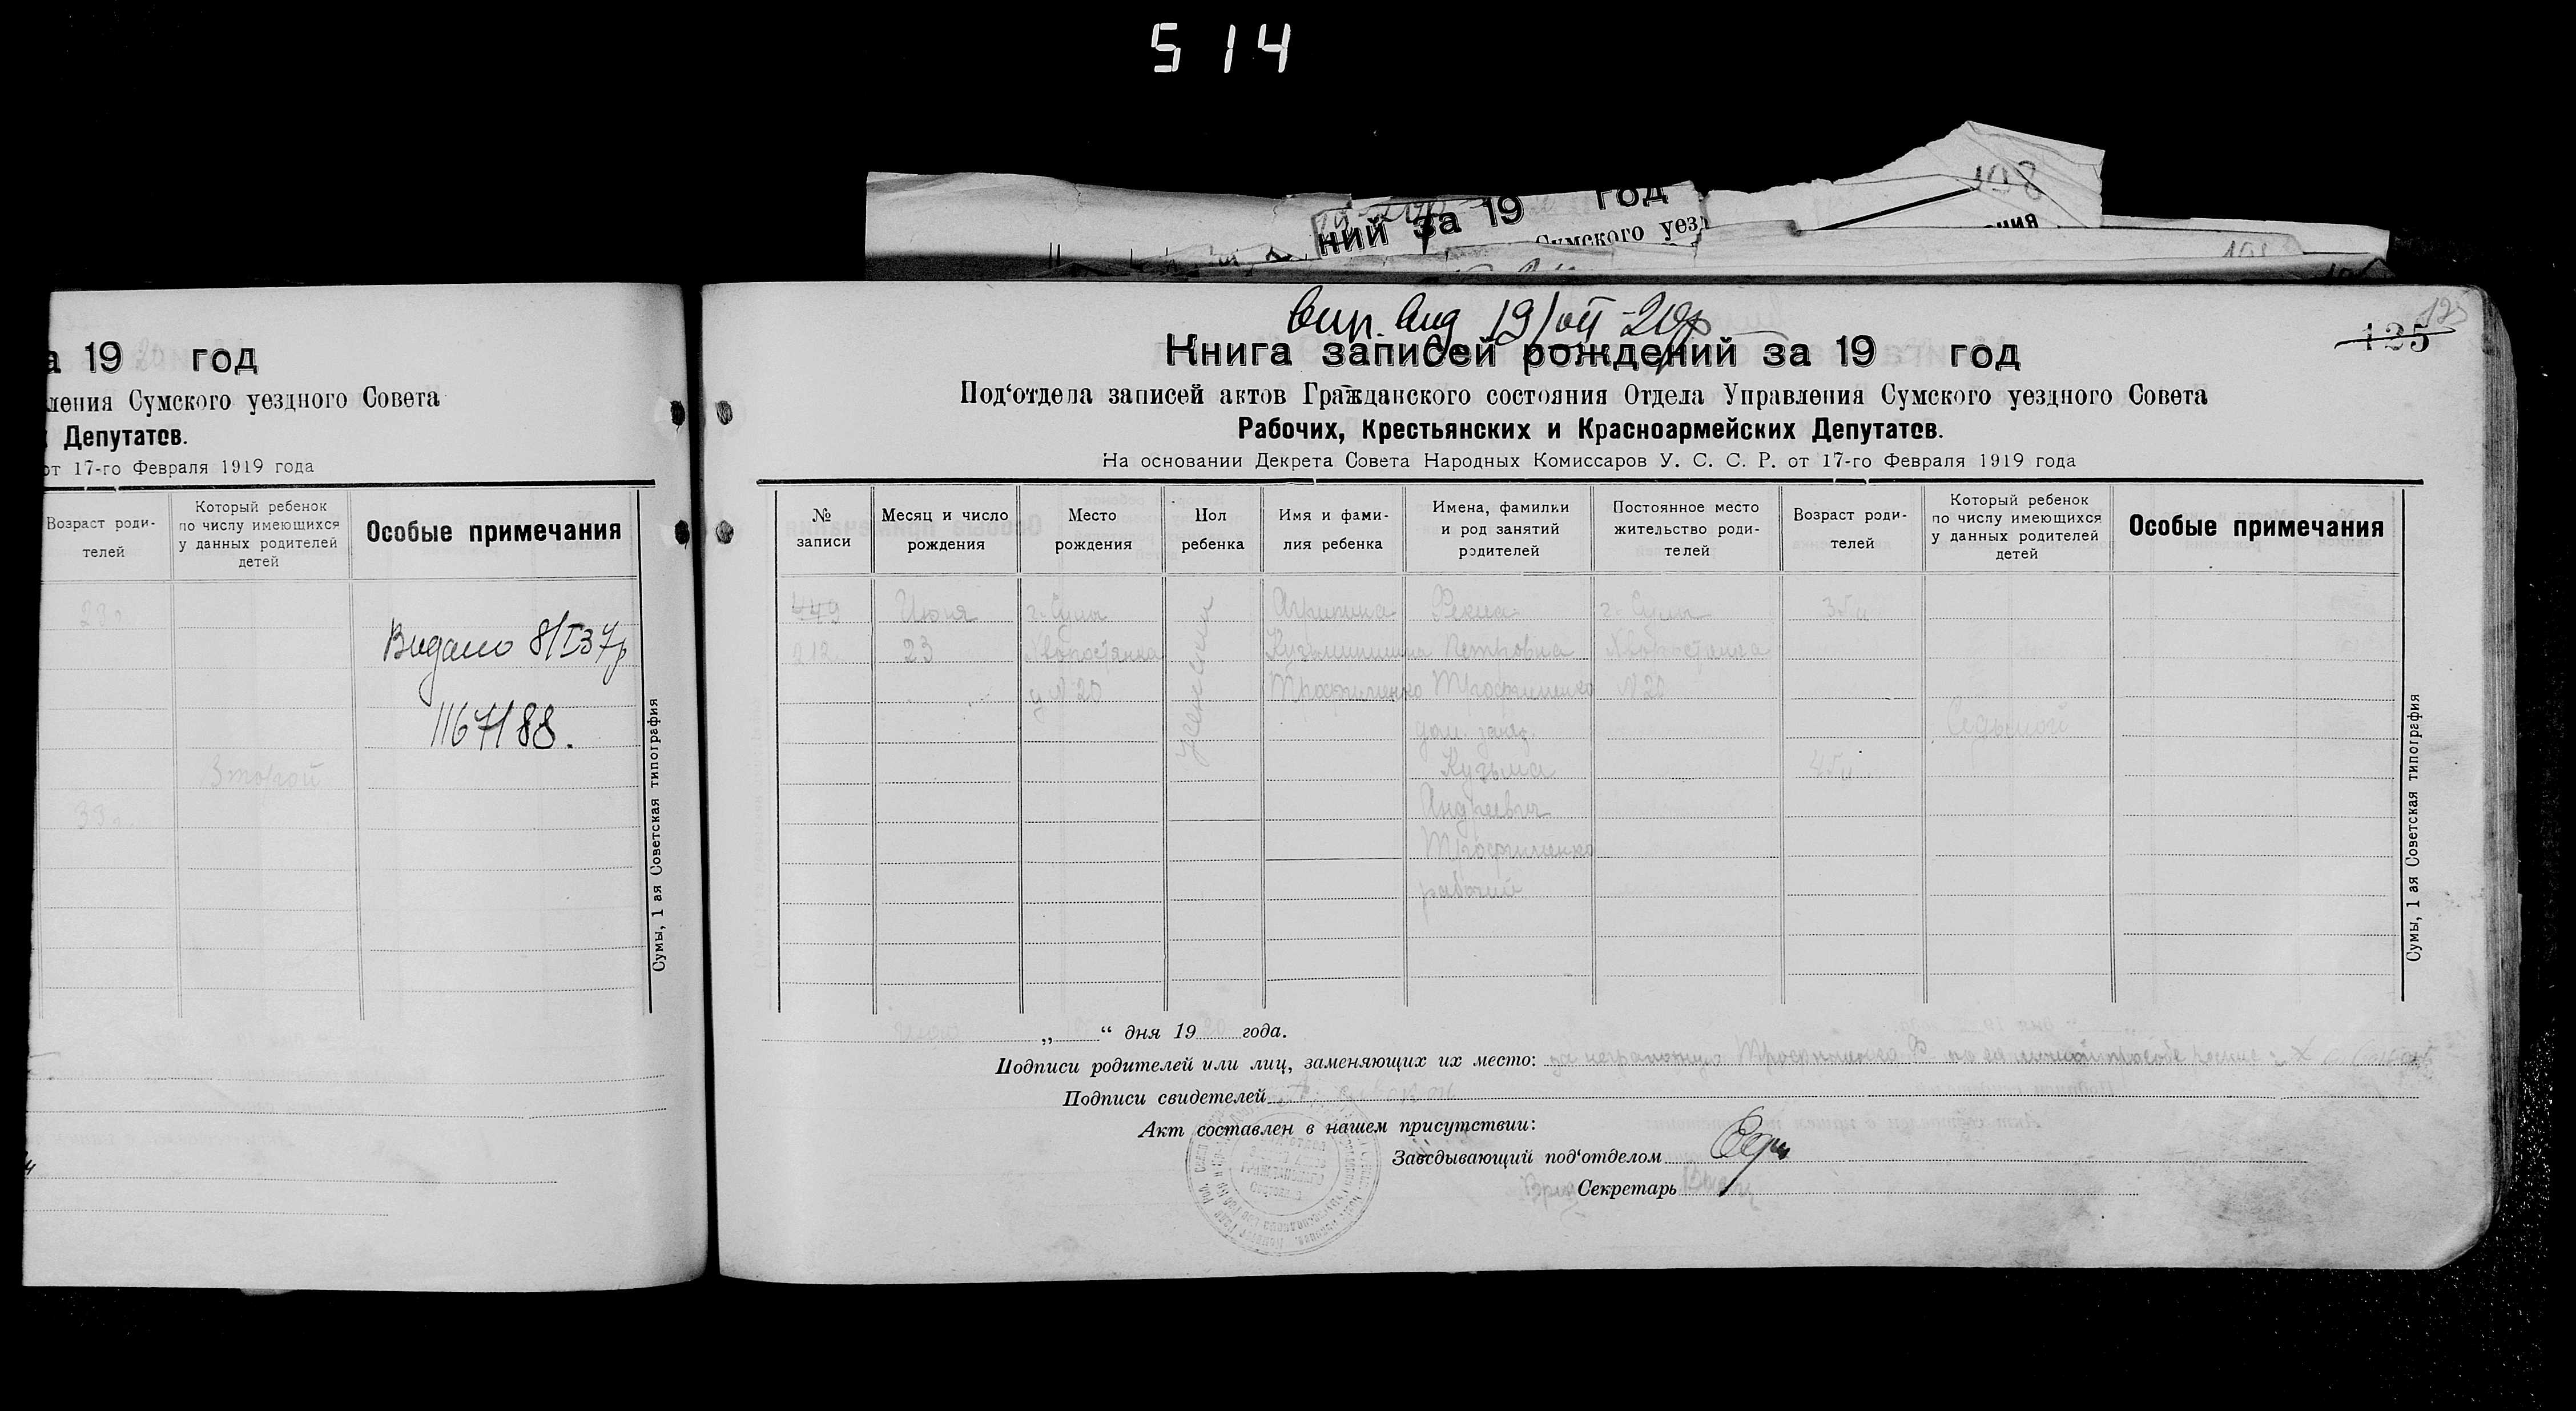 514
ний за 19 год
Сумского уезд
ния
108
а 19 год
ления Сумского уездного Совета
Депутатов.
от 17-го Февраля 1919 года
Возраст роди-
телей
Который ребенок
по числу имеющихся
у данных родителей
детей
Особые примечания
23 г.
Видано 8/I 37р
1167188.
Второй
33 г.
Сумы, 1 ая Советская типография
125
125
Книга записей рождений за 19 год
Под‘отдела записей актов Гражданского состояния Отдела Управления Сумского уездного Совета
Рабочих, Крестьянских и Красноармейских Депутатов.
На основании Декрета Совета Народных Комиссаров У. С. С. Р. от 17-го Февраля 1919 года
№
записи
Месяц и число
рождения
Место
рождения
Пол
ребенка
Имя и фами-
лия ребенка
Имена, фамилии
и род занятий
родителей
Постоянное место
жительство роди-
телей
Возраст роди-
телей
Который ребенок
по числу имеющихся
у данных родителей
детей
Особые примечания
449 Июня г. Сумы Женский г. Сумы 35 л
212 23 Кузьминишна Петровна
у № 20 Трофименко Трофименко № 20
дом. зан. Седьмой
Кузьма 45 л
Андреевич
Трофименко
рабочий
Сумы, 1 ая Советская типография
„ “ дня 19 года.
Подписи родителей или лиц, заменяющих их место: за неграмотную Трофименко
Подписи свидетелей
Акт составлен в нашем присутствии:
Заведывающий под‘отделом
Секретарь